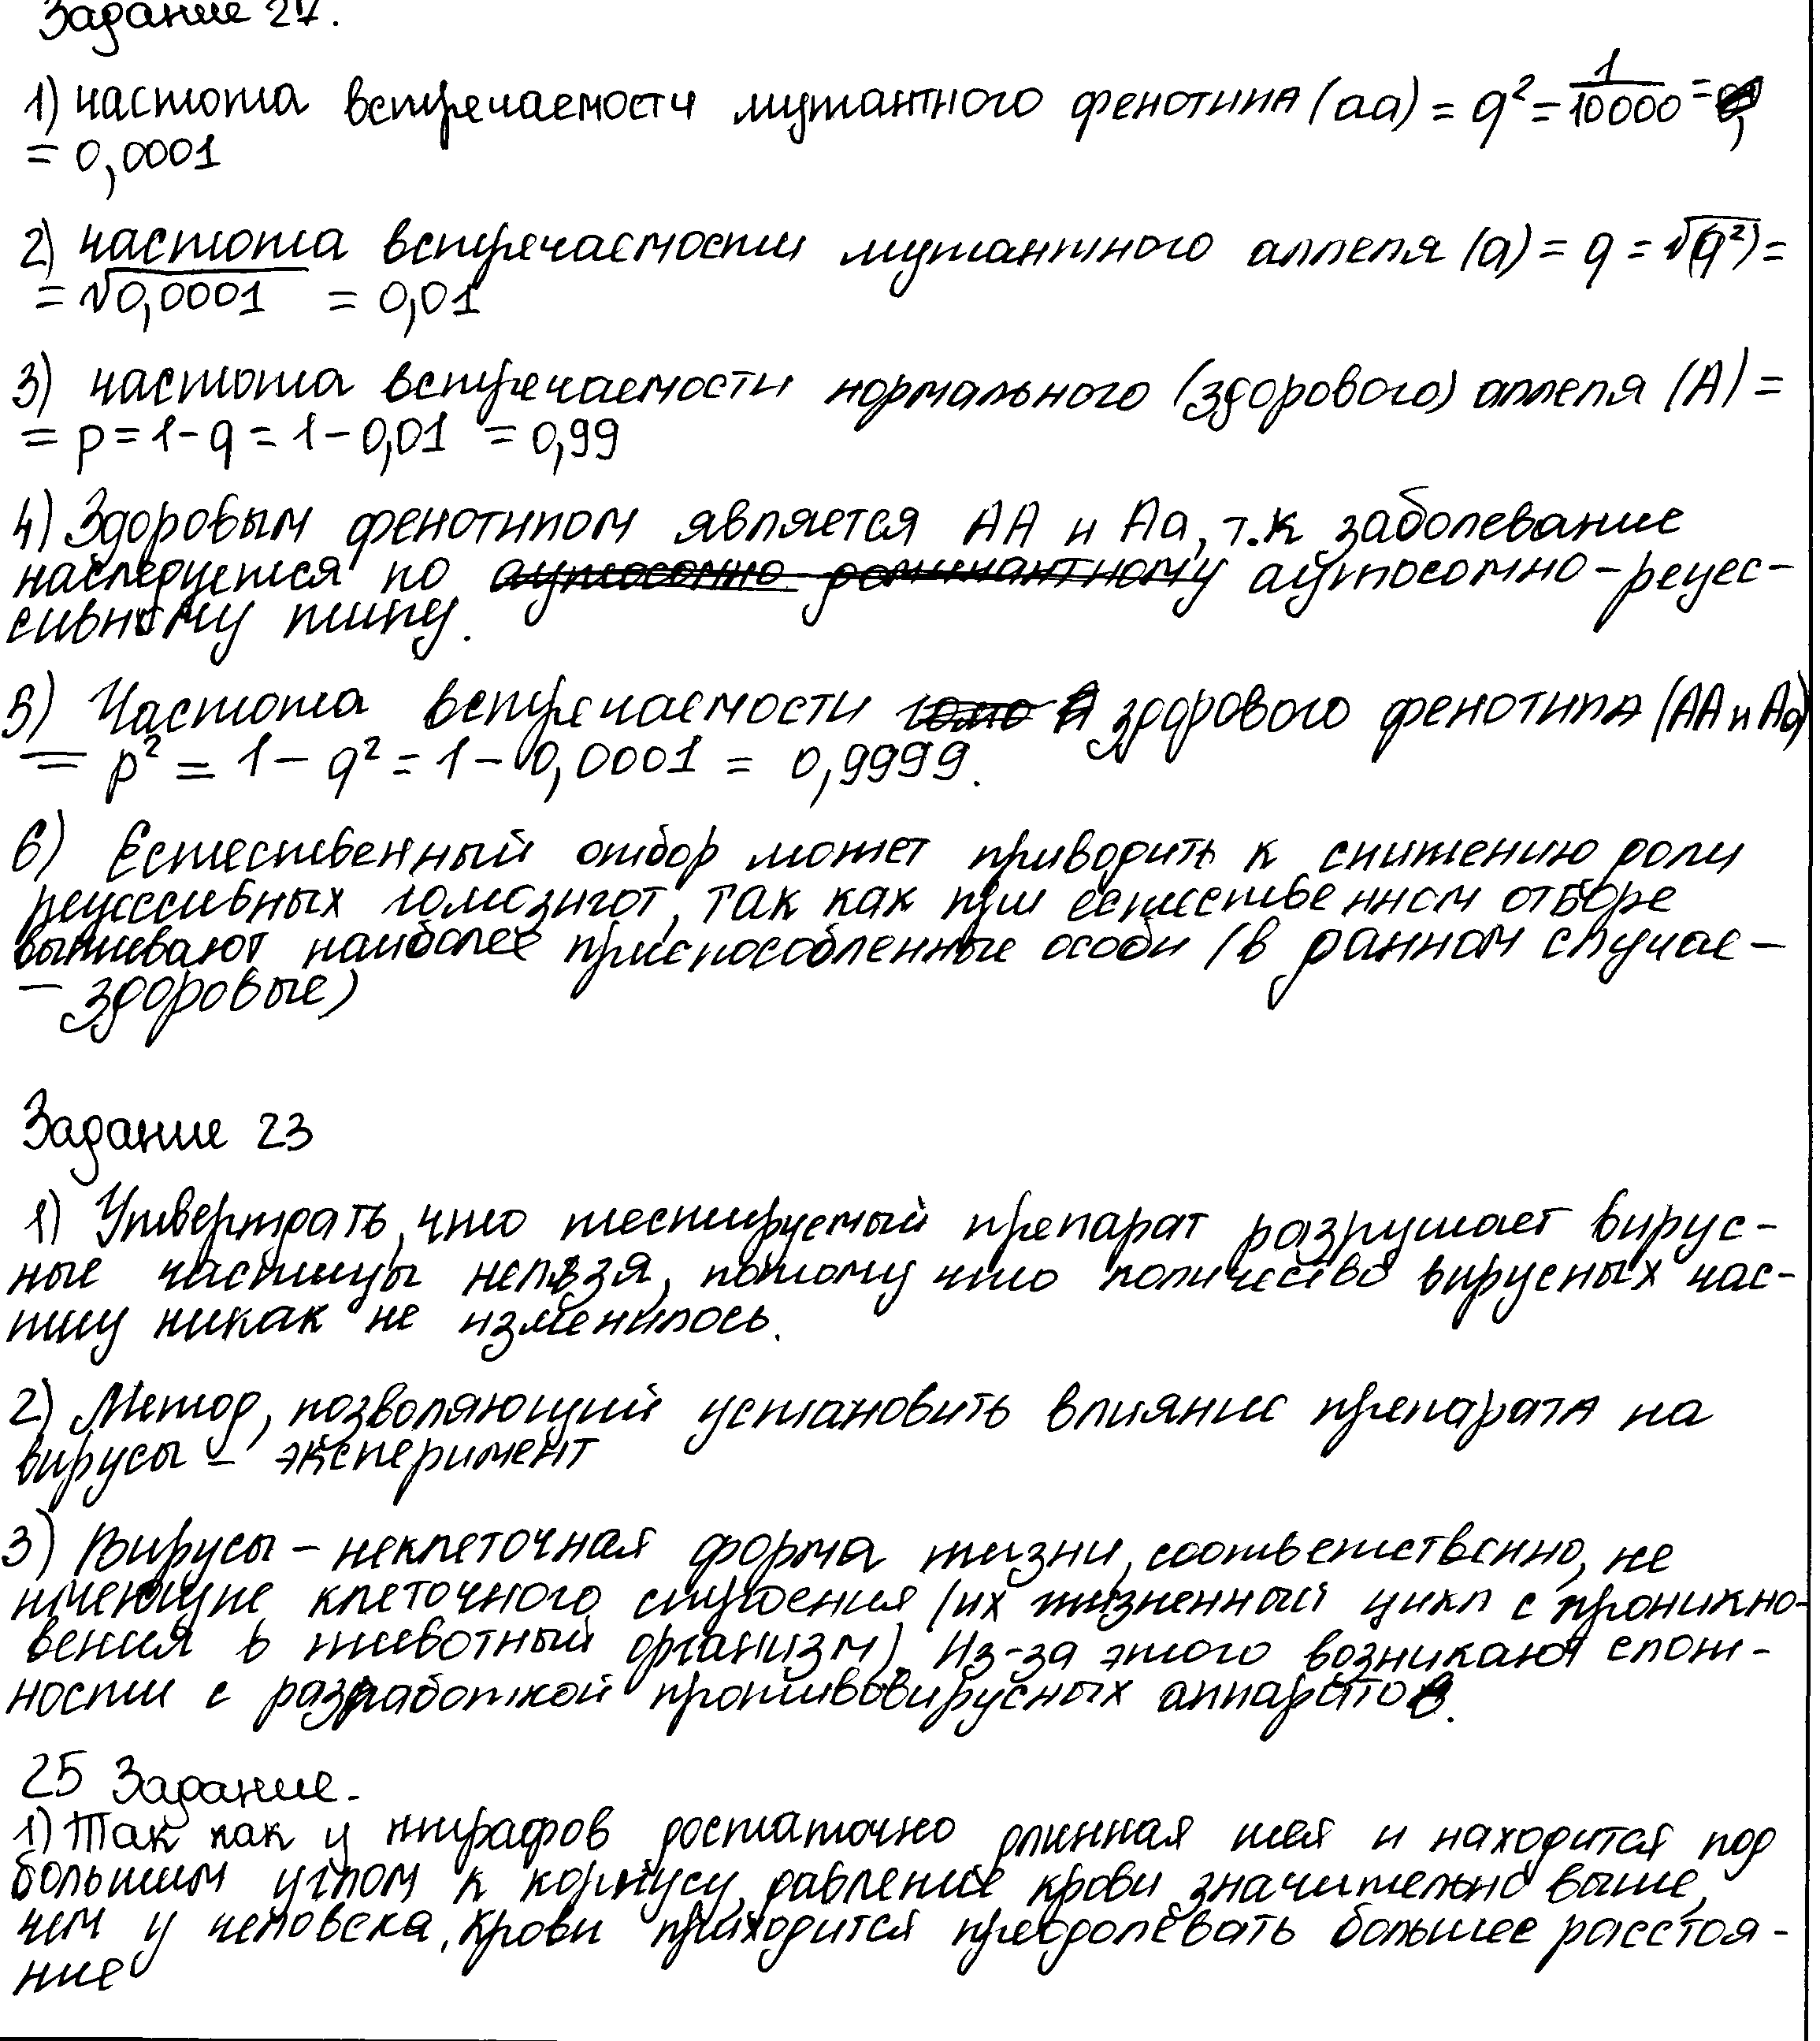 Задание 27.
1) частота встречаемости мутантного фенотипа (aa) = q² = 1/10000 =
= 0,0001
2) частота встречаемости мутантного аллеля (a) = q = √(q²) =
= √0,0001 = 0,01
3) частота встречаемости нормального (здорового) аллеля (A) =
= p = 1 - q = 1 - 0,01 = 0,99
4) Здоровым фенотипом является AA и Aa, т.к заболевание
наследуется по аутосомно-доминантному аутосомно-рецес-
сивному типу.
5) Частота встречаемости гомо A здорового фенотипа (AA и Aa)
= p² = 1 - q² = 1 - 0,0001 = 0,9999.
6) Естественный отбор может приводить к снижению доли
рецессивных гомозигот, так как при естественном отборе
выживают наиболее приспособленные особи (в данном случае -
- здоровые)
Задание 23
1) Утверждать, что тестируемый препарат разрушает вирус-
ные частицы нельзя, потому что количество вирусных час-
тиц никак не изменилось.
2) Метод, позволяющий установить влияние препарата на
вирусы - эксперимент
3) Вирусы - неклеточная форма жизни, соответственно, не
имеющие клеточного строения (их жизненный цикл с проникно-
вения в животный организм). Из-за этого возникают слож-
ности с разработкой противовирусных аппаратов.
25 Задание.
1) Так как у жирафов достаточно длинная шея и находится под
большим углом к корпусу, давление крови значительно выше,
чем у человека, крови приходится преодолевать большее расстоя-
ние